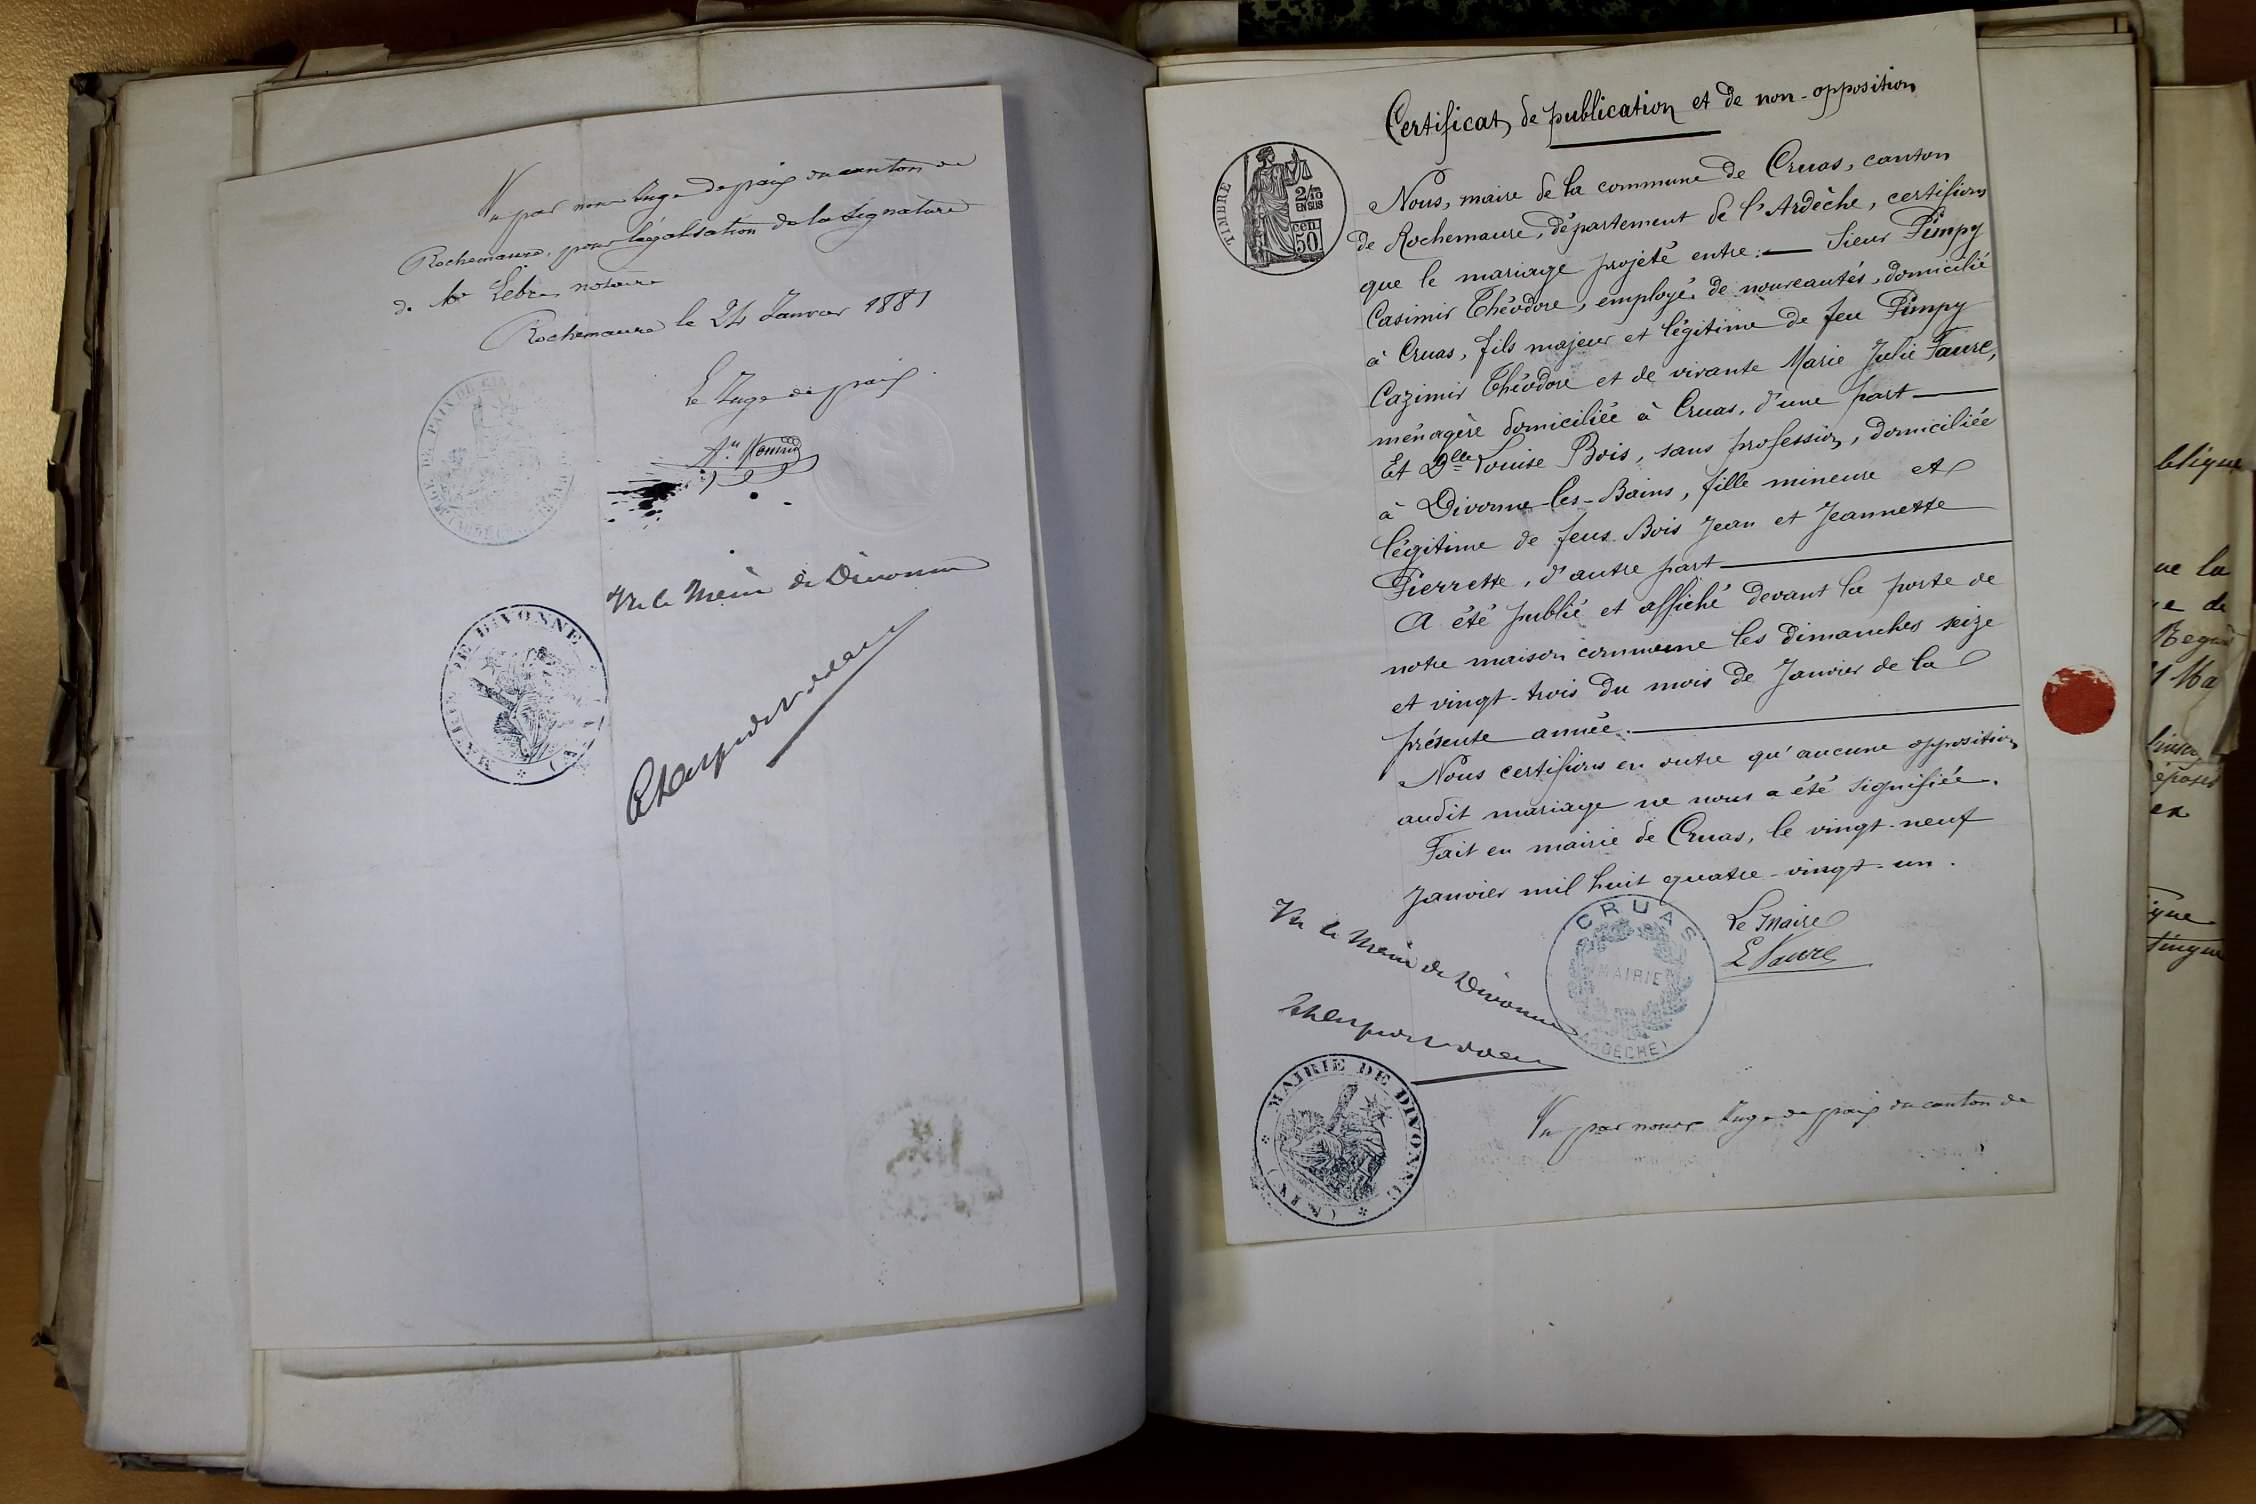 Vu par nous Juge de paix du canton de
Rochemaure, pour légalisation de la signature
de Me Lèbre notaire
Rochemaure le 24 Janvier 1881
Le Juge de paix
JUGE DE PAIX DU
Vu le Maire de Divonne
MAIRIE DE DIVONNE
(AIN)
Certificat de publication et de non-opposition
TIMBRE
2/10
EN SUS
cen.
50
Nous, maire de la commune de Cruas, canton
de Rochemaure, département de l'Ardèche, certifions
que le mariage projeté entre : — Sieur Pimpy
Casimir Théodore, employé de nouveautés, domicilié
à Cruas, fils majeur et légitime de feu Pimpy
Cazimir Théodore et de vivante Marie Julie Faure,
ménagère domiciliée à Cruas, d'une part —
Et Dlle Louise Bois, sans profession, domiciliée
à Divonne-les-Bains, fille mineure et
légitime de feus Bois Jean et Jeannette
Pierrette, d'autre part —
A été publié et affiché devant la porte de
notre maison commune les dimanches seize
et vingt-trois du mois de Janvier de la
présente année. —
Nous certifions en outre qu'aucune opposition
audit mariage ne nous a été signifiée.
Fait en mairie de Cruas, le vingt-neuf
Janvier mil huit quatre-vingt-un.
Le Maire
E Faure
CRUAS
MAIRIE
(ARDÈCHE)
Vu le Maire de Divonne
MAIRIE DE DIVONNE
(AIN)
Vu par nous Juge de paix du canton de
blique
ue la
ue de
ex